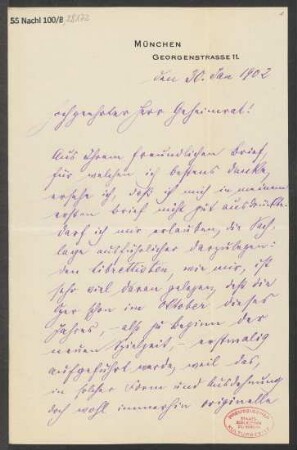 55 Nachl 100/B
MÜNCHEN
GEORGENSTRASSE 11.
den 30. Jan 1902
Hochgeehrter Herr Geheimrat!
Aus Ihrem freundlichen Brief,
für welchen ich bestens danke,
ersehe ich, daß ich mich in meinem
ersten Brief nicht gut ausdrückte.
Darf ich mir erlauben, die Sach-
lage ausführlicher darzulegen:
den Librettisten, wie mir, ist
sehr viel daran gelegen, daß die
Oper schon im Oktober dieses
Jahres, also zu Beginn der
neuen Spielzeit erstmalig
aufgeführt werde, weil das,
in solcher Form und Ausdehnung
doch wohl immerhin originelle